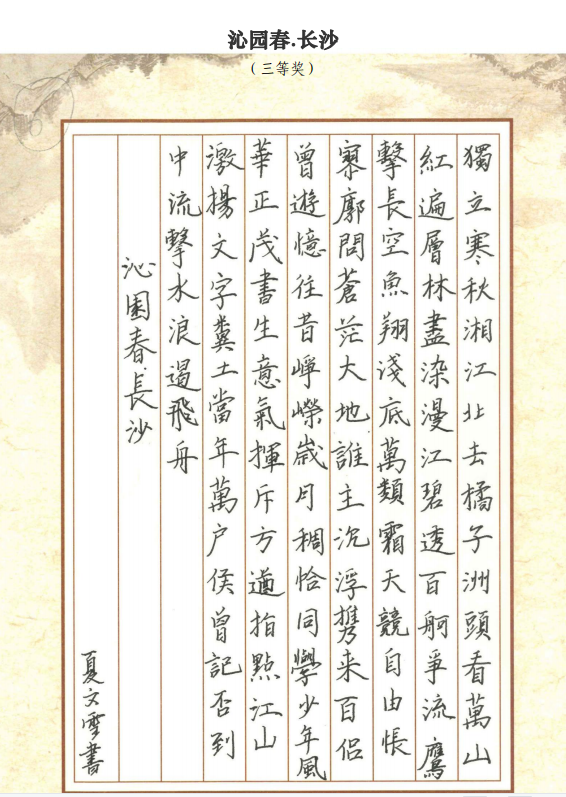 沁园春.长沙
（三等奖）
獨立寒秋湘江北去橘子洲頭看萬山
紅遍層林盡染漫江碧透百舸爭流鷹
擊長空魚翔淺底萬類霜天競自由悵
寥廓問蒼茫大地誰主沉浮攜来百侣
曾遊憶往昔崢嶸歲月稠恰同學少年風
華正茂書生意氣揮斥方遒指點江山
激揚文字糞土當年萬户侯曾記否到
中流擊水浪遏飛舟
沁園春.長沙
夏文雪書